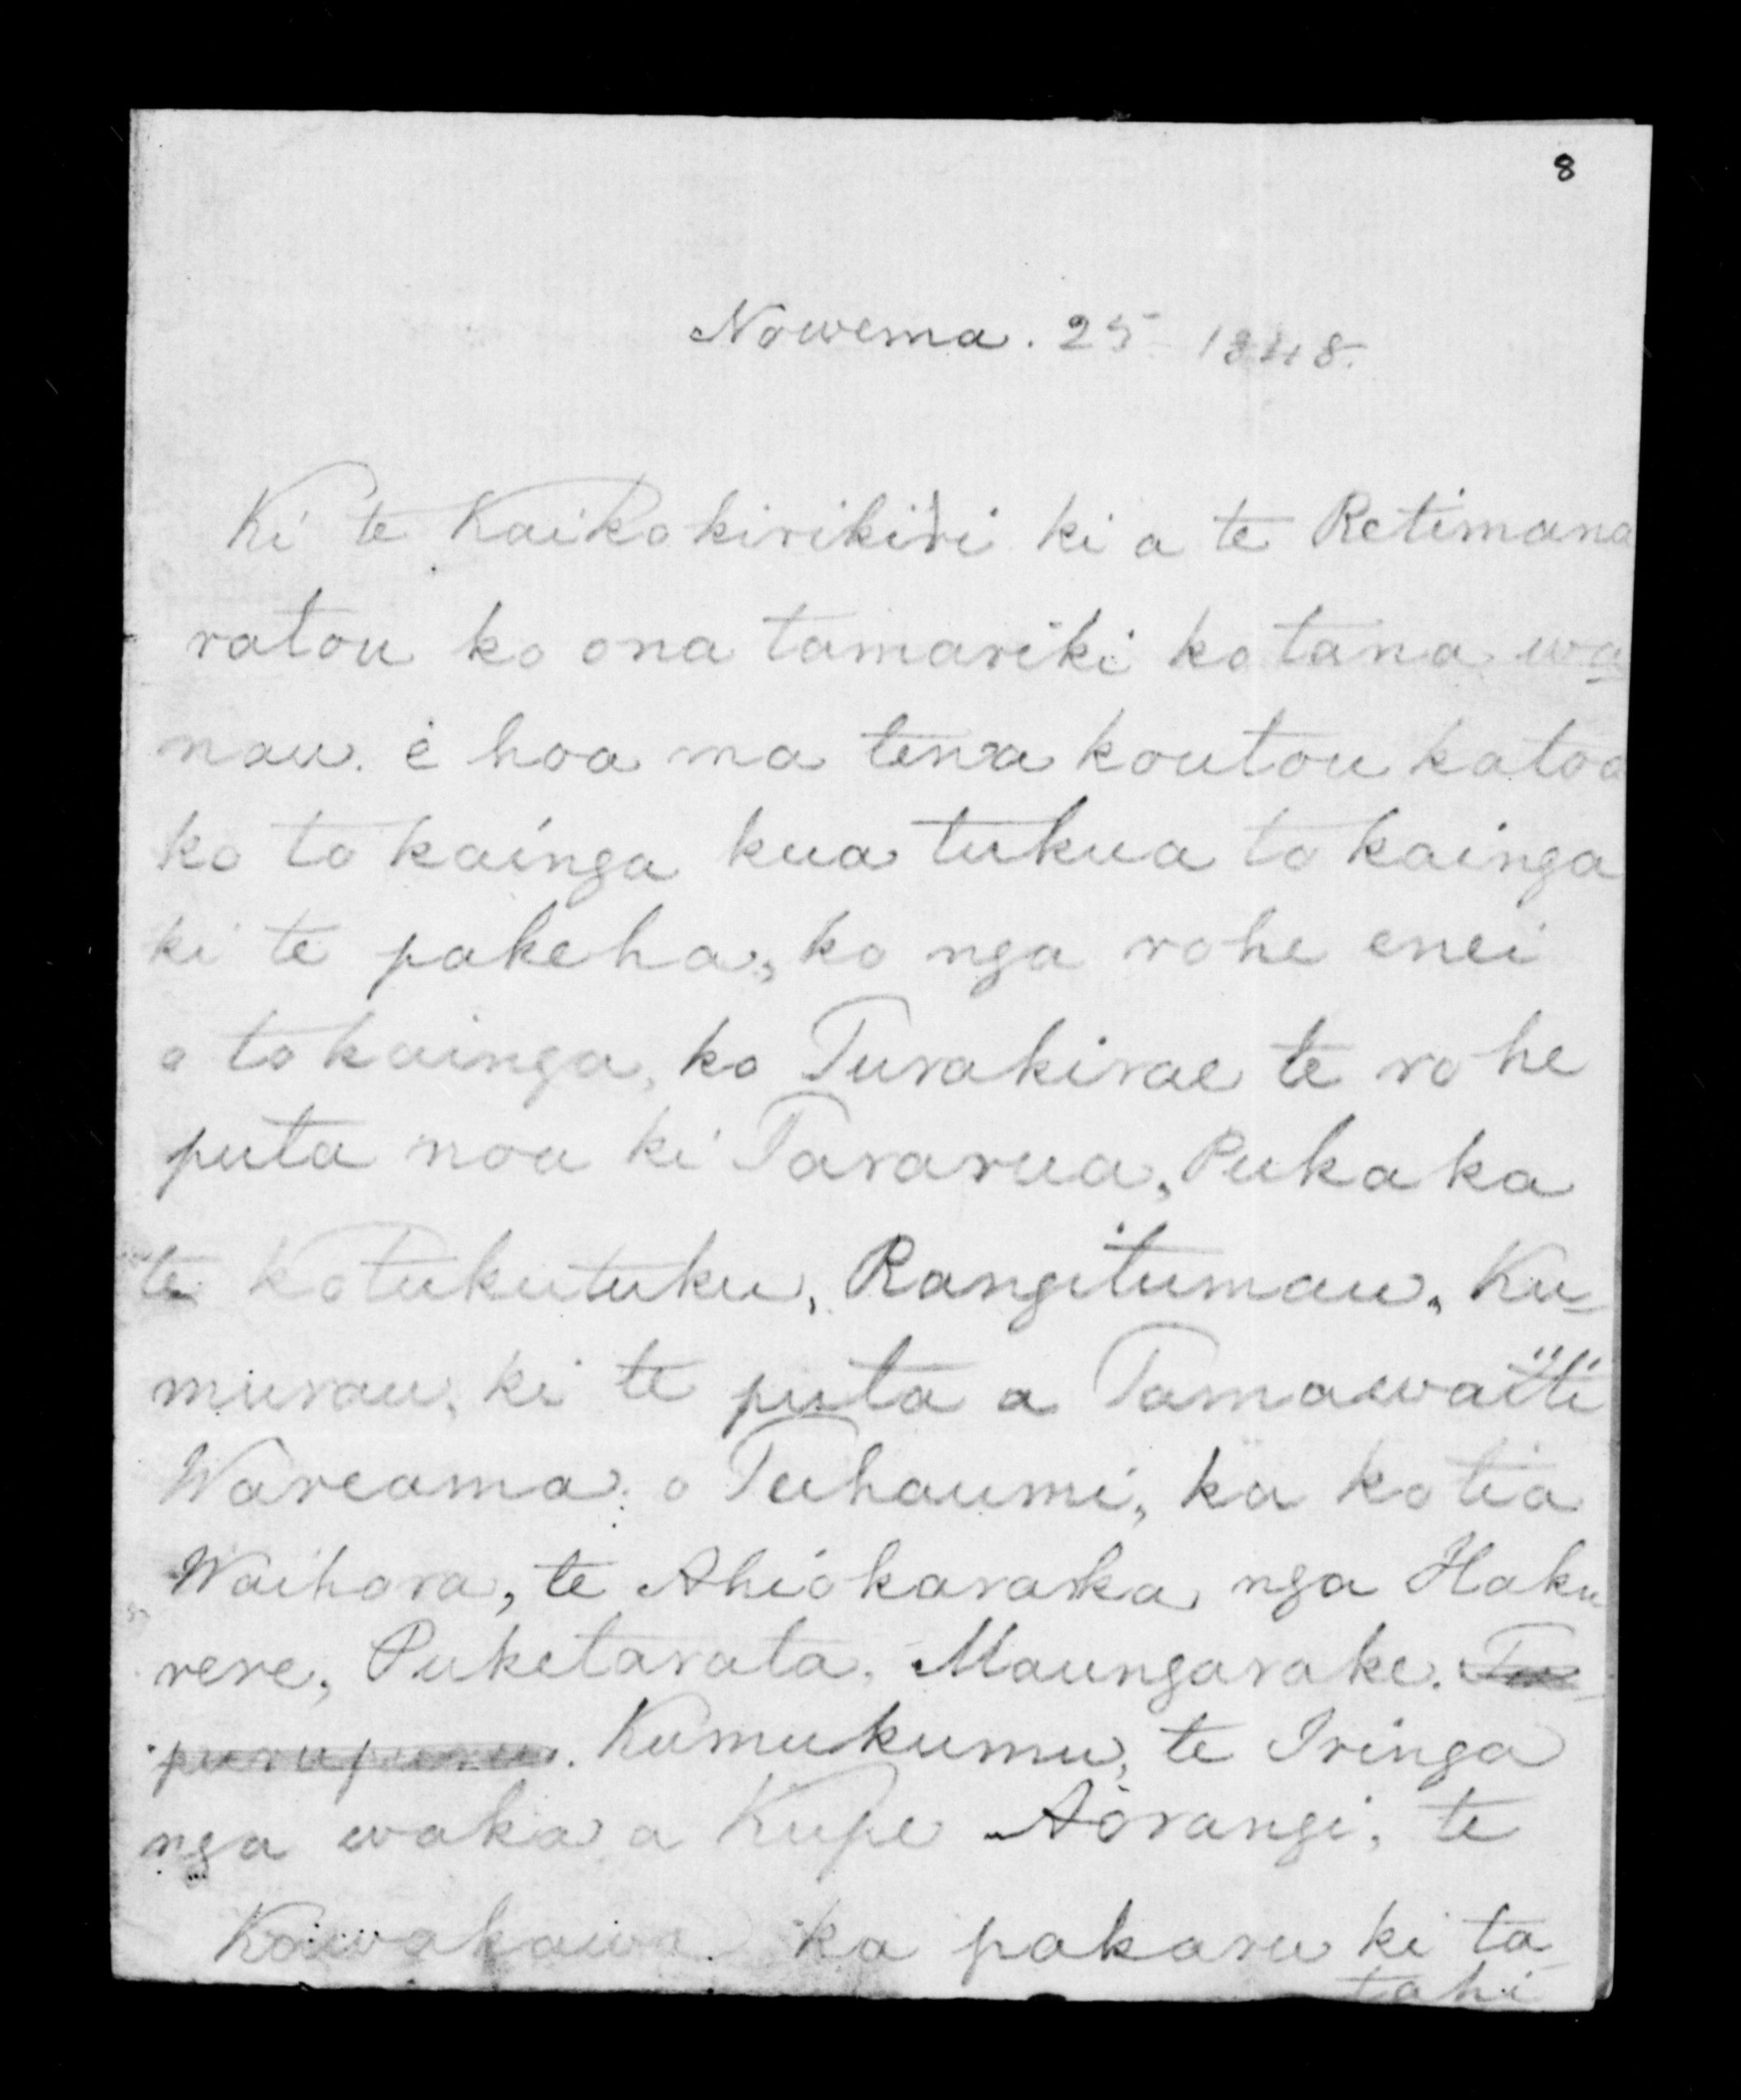 8
Nowema. 25 1848.
Ki te Kaikokirikiri ki a te Retimana
ratou ko ona tamariki ko tana wa
nau. e hoa ma tena koutou katoa
ko to kainga kua tukua to kainga
ki te pakeha, ko nga rohe enei
o to kainga, ko Turakirae te rohe
puta noa ki Tararua, Pukaka
te Kotukutuku, Rangitumau, Ku-
murau, ki te puta a Tamawaiti
Wareama o Tuhaumi, ka kotia
Waihora, te Ahiokaraka nga Haku
rere, Puketarata, Maungarake. Tu
purupuru. Kumukumu, te Iringa
nga waka a Kupe Aorangi, te
Kawakawa ka pakaru ki ta
tahi